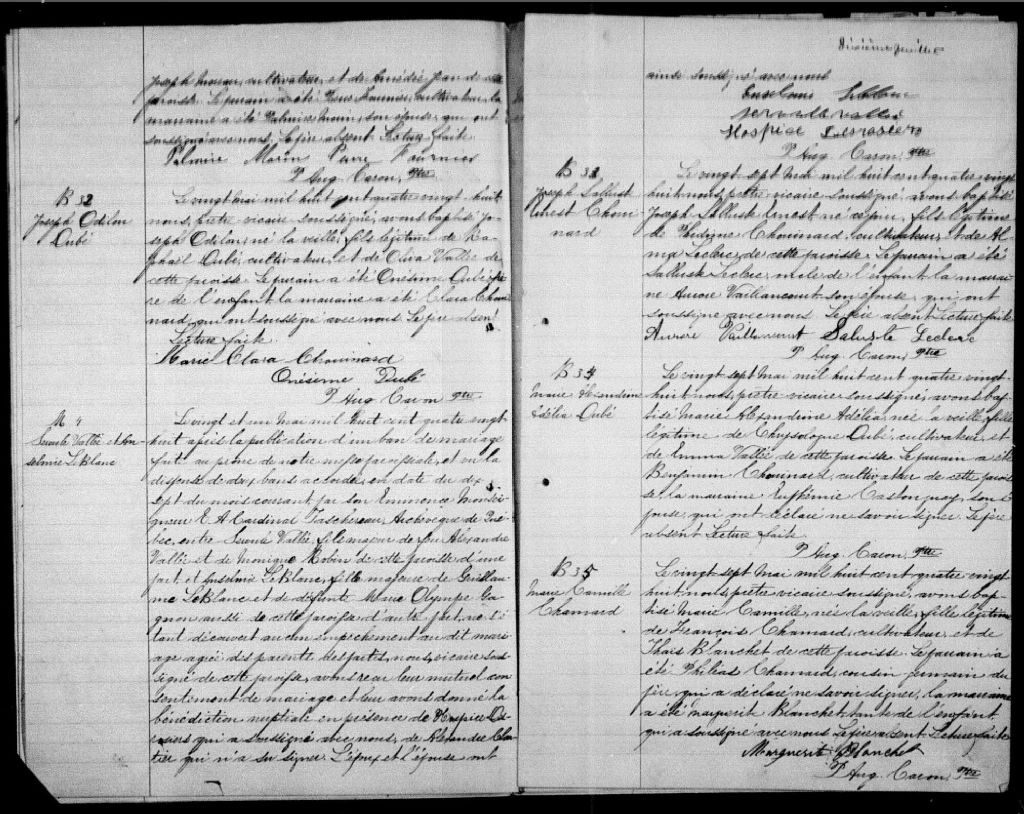 Joseph Moreau, cultivateur, et de
paroisse. Le parrain a été Pierre Fournier, cultivateur, la
marraine a été Palmire Morin, son épouse, qui ont
soussigné avec nous. Le père absent Lecture faite
Palmire Morin Pierre Fournier
P Aug. Caron, Ptre
B 32
Joseph Odilon
Dubé
Le vingt Mai mil huit cent quatre vingt-huit
nous, prêtre vicaire soussigné, avons baptisé Jo-
seph Odilon, né la veille, fils légitime de Ra-
phael Dubé, cultivateur, et de Oliva Vallée de
cette paroisse. Le parrain a été Onésime Dubé frè-
re de l'enfant la marraine a été Clara Choui-
nard, qui ont soussigné avec nous Le père absent
Lecture faite.
Marie Clara Chouinard
Onésime Dubé
P Aug Caron Ptre
M 4
Vallée et An-
selmie LeBlanc
Le vingt et un Mai mil huit cent quatre vingt
huit après la publication d'un ban de mariage
faite au prône de notre messe paroissiale, et vu la
dispense de deux bans accordée, en date du dix
sept du mois courant, par son Eminence Monsei-
gneur E A Cardinal Taschereau, Archevêque de Qué-
bec, entre Vallée, fils majeur de feu Alexandre
Vallée et de Monique Robin de cette paroisse d'une
part, et Anselmie LeBlanc, fille majeure de Guillau-
me LeBlanc et de défunte Marie Olympe Ga-
gnon aussi de cette paroisse d'autre part, ne s'é-
tant découvert aucun empêchement au dit mari-
age agréé des parents des parties, nous, vicaire sous-
signé de cette paroisse, avons reçu leur mutuel con-
sentement de mariage et leur avons donné la
bénédiction nuptiale en présence de Hospice Des-
rosiers qui a soussigné avec nous, de Alexandre
qui n'a su signer. L'époux et l'épouse ont
ainsi soussigné avec nous
Vallée
Hospice Desrosiers
P Aug. Caron, Ptre
B 33
Joseph Salluste
Ernest Choui-
nard
Le vingt sept Mai mil huit cent quatre vingt
huit nous, prêtre vicaire soussigné, avons baptisé
Joseph Salluste Ernest né ce jour, fils légitime
de Chouinard, cultivateur, et de Al-
ma Leclerc, de cette paroisse. Le parrain a été
Salluste Leclerc, oncle de l'enfant la marrai-
ne Aurore Vaillancourt son épouse, qui ont
soussigné avec nous. Le père absent Lecture faite
Aurore Vaillancourt Saluste Leclerc
P Aug. Caron, Ptre
B 34
Marie Alexandrine
Adélia Dubé
Le vingt sept Mai mil huit cent quatre vingt-
huit nous, prêtre vicaire soussigné, avons bap-
tisé Marie Alexandrine Adélia, née la veille, fille
légitime de Chrysologue Dubé, cultivateur, et
de Emma Vallée de cette paroisse. Le parrain a été
Benjamin Chouinard, cultivateur de cette parois-
se, la marraine Euphémie Caston son é-
pouse, qui ont déclaré ne savoir signer. Le père
absent Lecture faite.
P Aug. Caron, Ptre
B 35
Marie Camille
Chamard
Le vingt sept Mai mil huit cent quatre vingt
huit nous, prêtre vicaire soussigné, avons bap-
tisé Marie Camille, née la veille, fille légitime
de François Chamard, cultivateur, et de
Thaïs Blanchet de cette paroisse. Le parrain a
été Philéas Chamard, cousin germain du
père, qui a déclaré ne savoir signer, la marraine
a été Marguerite Blanchet, tante de l'enfant,
qui a soussigné avec nous Le père absent Lecture faite
Marguerite Blanchet
P Aug. Caron, Ptre